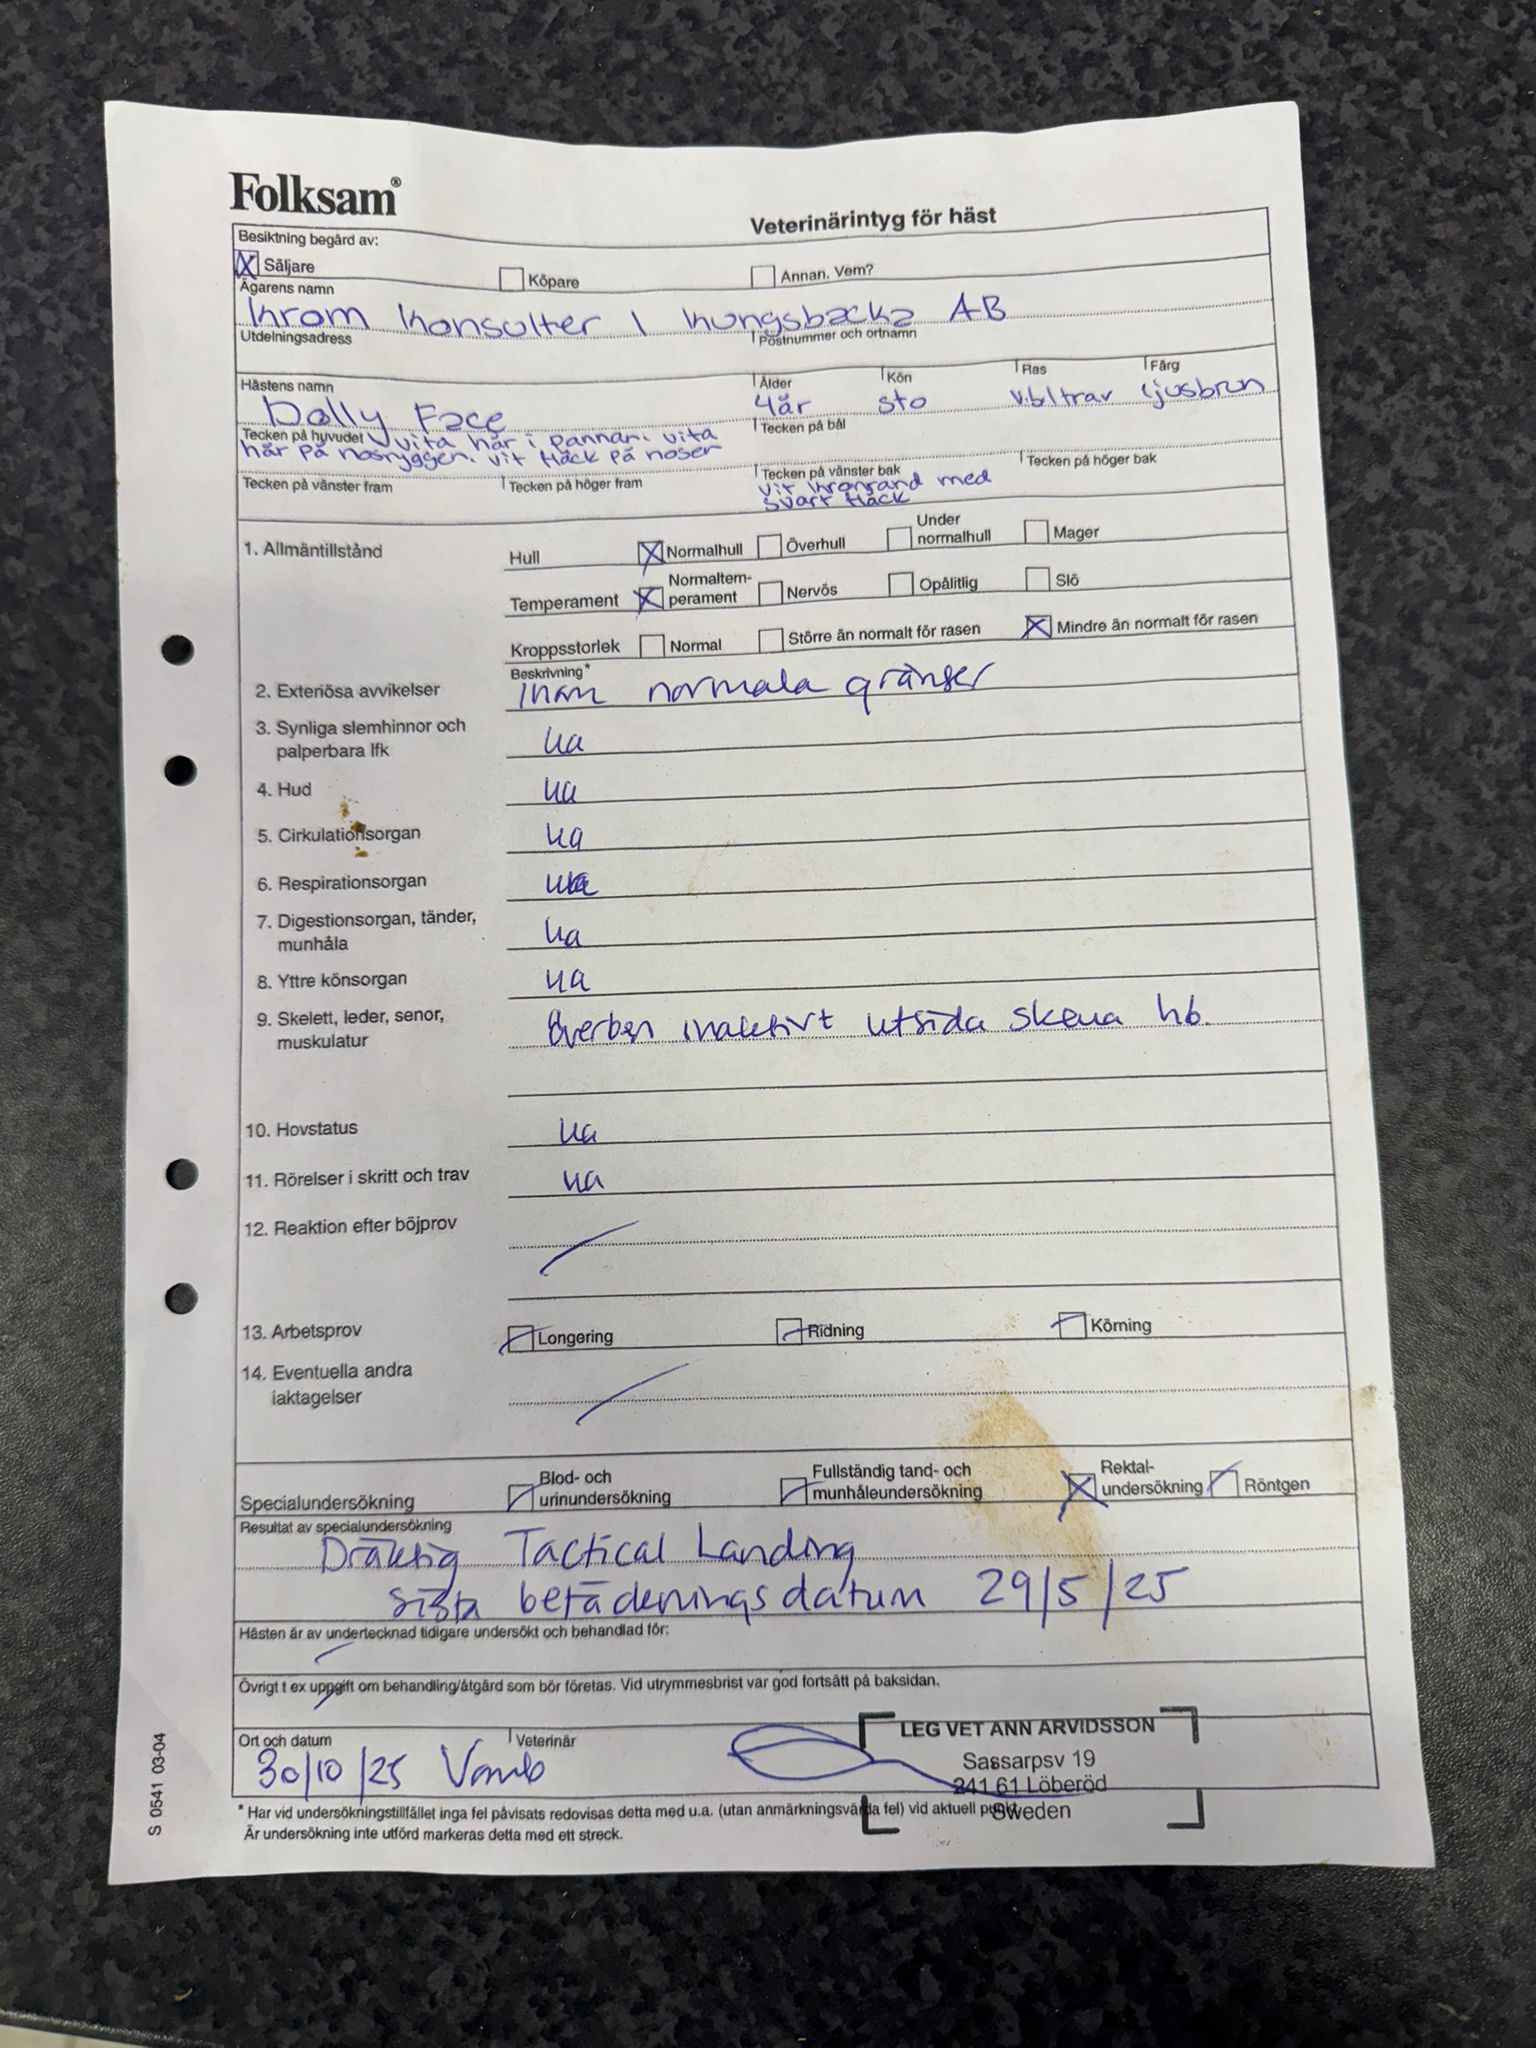 Folksam®
Veterinärintyg för häst
Besiktning begärd av:
Säljare Köpare Annan. Vem?
Ägarens namn
Krom Konsulter i Kungsbacka AB
Utdelningsadress Postnummer och ortnamn
Hästens namn Ålder Kön Ras Färg
Dolly Face 4år sto v.bltrav ljusbrun
Tecken på huvudet vita hår i pannan. vita Tecken på bål
hår på nosryggen. vit fläck på nosen
Tecken på vänster fram Tecken på höger fram Tecken på vänster bak Tecken på höger bak
vit kronrand med
svart fläck
1. Allmäntillstånd Hull Normalhull Överhull Under normalhull Mager
Temperament Normaltem-
perament Nervös Opålitlig Slö
Kroppsstorlek Normal Större än normalt för rasen Mindre än normalt för rasen
Beskrivning*
2. Exteriösa avvikelser Inom normala gränser
3. Synliga slemhinnor och
palperbara lfk ua
4. Hud ua
5. Cirkulationsorgan ua
6. Respirationsorgan ua
7. Digestionsorgan, tänder,
munhåla ua
8. Yttre könsorgan ua
9. Skelett, leder, senor,
muskulatur Överben inaktivt utsida skena hb.
10. Hovstatus ua
11. Rörelser i skritt och trav ua
12. Reaktion efter böjprov
13. Arbetsprov Longering Ridning Körning
14. Eventuella andra
iaktagelser
Specialundersökning Blod- och
urinundersökning Fullständig tand- och
munhåleundersökning Rektal-
undersökning Röntgen
Resultat av specialundersökning
Dräktig Tactical Landing
sista betäckningsdatum 29/5/25
Hästen är av undertecknad tidigare undersökt och behandlad för:
Övrigt t ex uppgift om behandling/åtgärd som bör företas. Vid utrymmesbrist var god fortsätt på baksidan.
Ort och datum Veterinär
30/10/25 Vomb
LEG VET ANN ARVIDSSON
Sassarpsv 19
241 61 Löberöd
Sweden
* Har vid undersökningstillfället inga fel påvisats redovisas detta med u.a. (utan anmärkningsvärda fel) vid aktuell punkt.
Är undersökning inte utförd markeras detta med ett streck.
S 0541 03-04